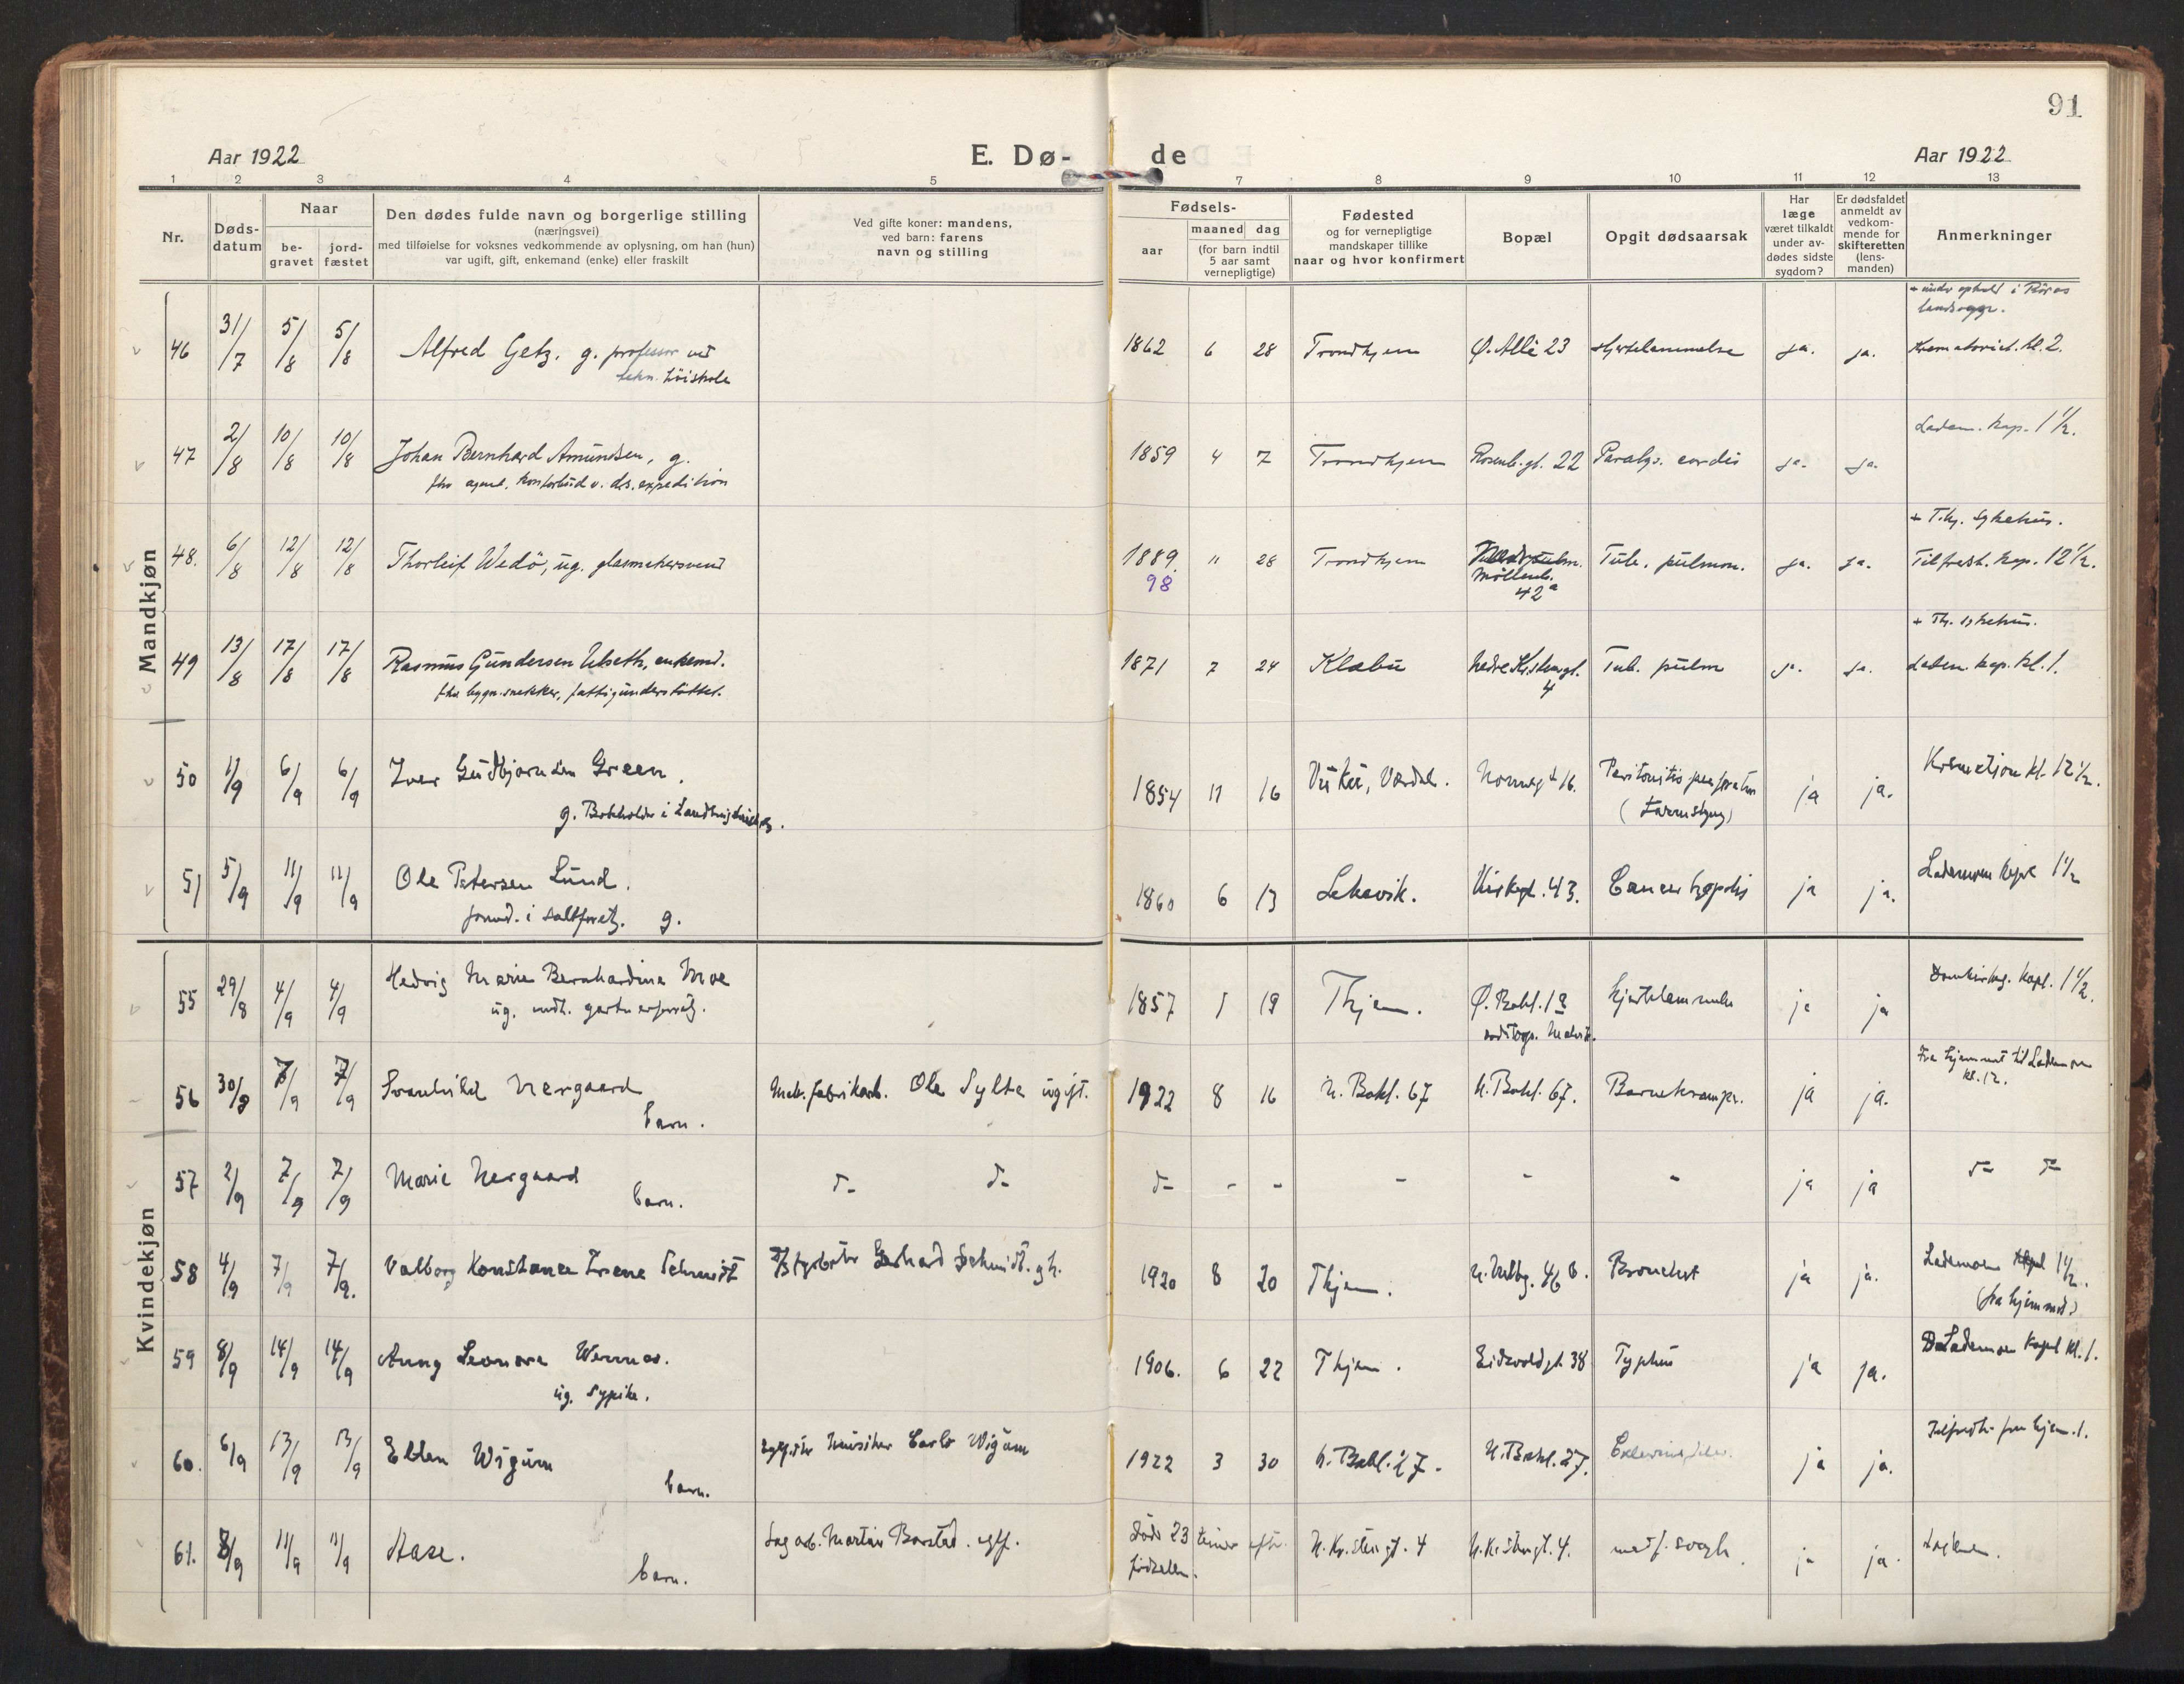 91
Aar 1922
E. Dø-
de
Aar 1922
1 2 3 4 5 7 8 9 10 11 12 13
Nr.
Døds-
datum
Naar
be-
gravet
jord-
fæstet
Den dødes fulde navn og borgerlige stilling
(næringsvei)
med tilføielse for voksnes vedkommende av oplysning, om han (hun)
var ugift, gift, enkemand (enke) eller fraskilt
Ved gifte koner: mandens,
ved barn: farens
navn og stilling
Fødsels-
aar
maaned dag
(for barn indtil
5 aar samt
vernepligtige)
Fødested
og for vernepligtige
mandskaper tillike
naar og hvor konfirmert
Bopæl
Opgit dødsaarsak
Har
læge
været tilkaldt
under av-
dødes sidste
sygdom?
Er dødsfaldet
anmeldt av
vedkom-
mende for
skifteretten
(lens-
manden)
Anmerkninger
Mandkjøn
+ under ophold i Röros
46 31/7 5/8 5/8 Alfred Getz. g. professor ved 1862 6 28 Trondhjem Ø. Allé 23 Hjertelammelse ja. ja. Krematoriet. kl. 2.
tekn. höiskole
Ladem. kap. 1 1/2.
47 2/8 10/8 10/8 Johan Bernhard Amundsen, g. 1859 4 7 Trondhjem Rosenb. gt. 22 Paralys. cordis ja. ja.
fhv agent. Kontorbud v. ds. expedition
+ T.hj. sykehus.
48. 6/8 12/8 12/8 Thorleif Wedö, ug. glasmestersvend 1889. 11 28 Trondhjem Tub. pulmon. ja. ja. Tilfredsh. kap. 12 1/2.
98 Möllenb.
42a
+ Th. sykehus.
49 13/8 17/8 17/8 Rasmus Gundersen Ulseth, enkemd. 1871 7 24 Klæbu Nedre Kr.stensgt. Tub. pulm ja. ja. Ladem. kap. kl. 1.
fhv bygn. snekker, fattigunderstöttet. 4
50 1/9 6/9 6/9 Iver Gudbjornsen Green. 1854 11 16 Vuku, Værdal. Nonnegt 16. Peritonitis perforativ ja ja. Kremation kl. 12 1/2.
g. Bokholder i
51 5/9 11/9 11/9 Ole Petersen Lund. 1860 6 13 Leksvik. Kirkegt. 43. Cancer hepatis ja ja. Lademoen kapel 1 1/2
formd. i saltforretn. g.
Kvindekjøn
55 29/8 4/9 4/9 Hedvig Marie Bernhardine Moe 1857 5 19 Thjem. Ø. Bakl. 1a hjertelammelse ja ja Domkirkeg. kapl. 1 1/2.
ug. indh. gartnerforretn.
56 30/8 7/9 7/9 Svanhild Nergaard Mek. fabrikarb. Ole Sylte ugift. 1922 8 16 N. Bakl. 67 N. Bakl. 67. Barnekramper. ja ja. Fra hjemmet til Lademoen
barn. kl. 12.
57 2/9 7/9 7/9 Marie Nergaard do do do - - - - - ja ja do do
barn.
58 4/9 7/9 7/9 Valborg Konstance Irene Schmidt Gerhard Schmidt. gt. 1920 8 20 Thjem. 46 b. Bronchit ja ja. Lademoen kapel 1 1/2.
(fra hjemmet)
59 8/9 14/9 14/9 Anny Leonora Wennes. 1906. 6 22 Thjem. Eidsvoldgt. 38 Typhus ja ja. Lademoen kapel kl. 1.
ug. sypike.
60. 6/9 13/9 13/9 Ellen Wigum musiker Carlo Wigum 1922 3 30 N. Bakl. 27. N. Bakl. 27. ja ja. Tilfredsh. fra hjem. 1.
barn.
61. 8/9 11/9 11/9 Aase. Sag arb. Martin Barstad. ugft. Död 23 timer efter N. Kr.stensgt. 4 N. Kr.stensgt. 4. medf. svagh. ja ja.
barn. födselen.